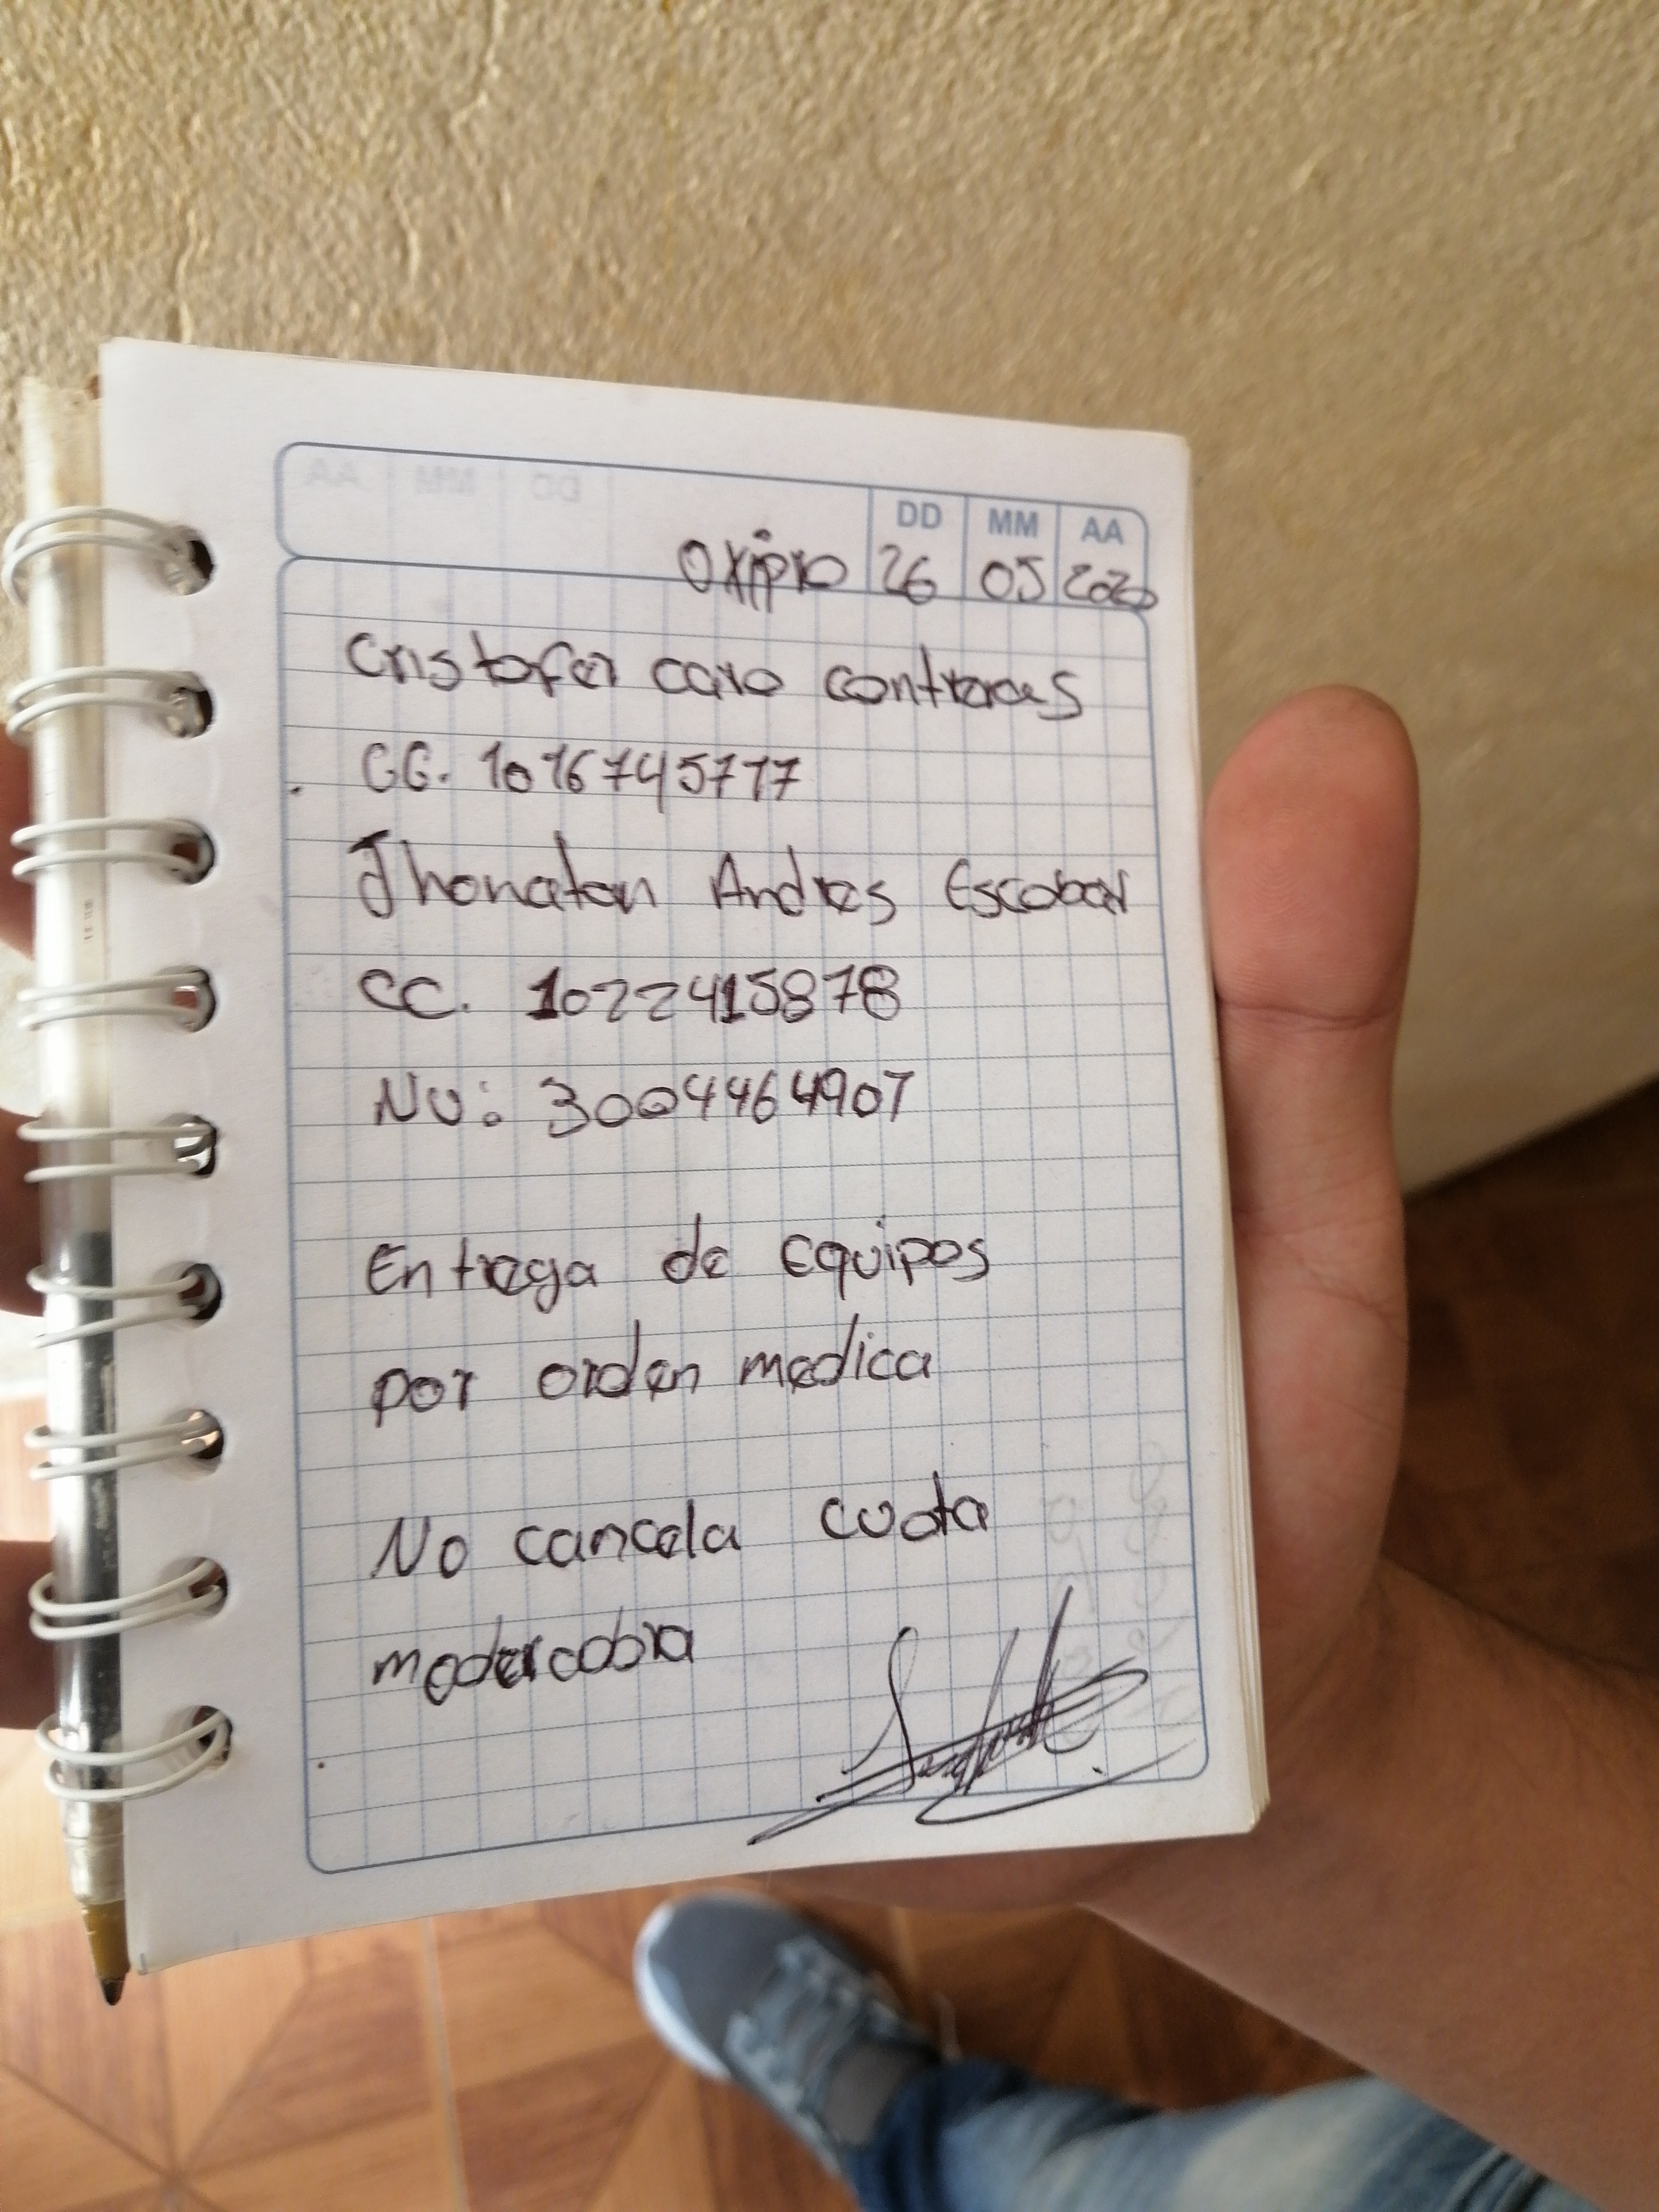 DD MM AA
Oxipro 26 05 2020
Cristofer caro contreras
CC. 1016745777
Jhonatan Andres Escobar
CC. 1022415878
NU: 3004464907
Entrega de Equipos
por orden medica
No cancela cuota
moderadora